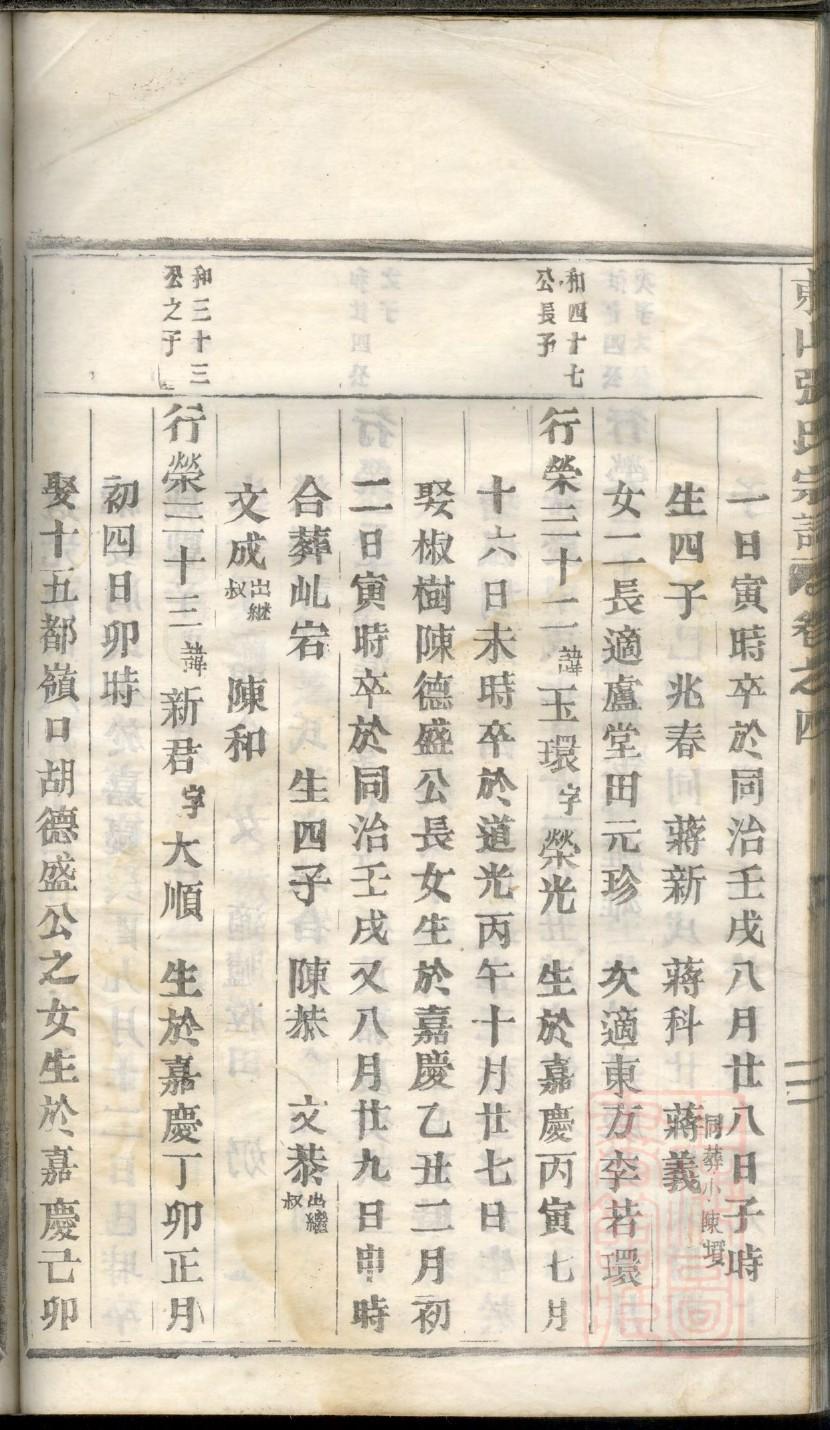 東山張氏宗譜卷之四
一日寅時卒於同治壬戌八月廿八日子時
同葬小陳墳
生四子 兆春 蔣新 蔣科 蔣義
女二長適盧堂田元珍 次適東方李若環
和四十七
公長子
行榮三十二諱玉環字榮光 生於嘉慶丙寅七月
十六日未時卒於道光丙午十月廿七日
娶椒樹陳德盛公長女生於嘉慶乙丑二月初
二日寅時卒於同治壬戌又八月廿九日申時
合葬乢宕 生四子 陳恭 文恭出繼叔
文成出継叔 陳和
和三十三
公之子
行榮三十三諱新君字大順 生於嘉慶丁卯正月
初四日卯時
娶十五都嶺口胡德盛公之女生於嘉慶己卯